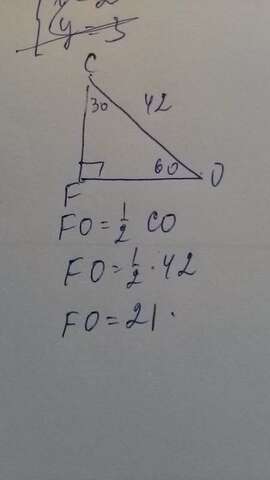 y = 3
C
30
42
60
O
F
FO = 1/2 CO
FO = 1/2 · 42
FO = 21 .